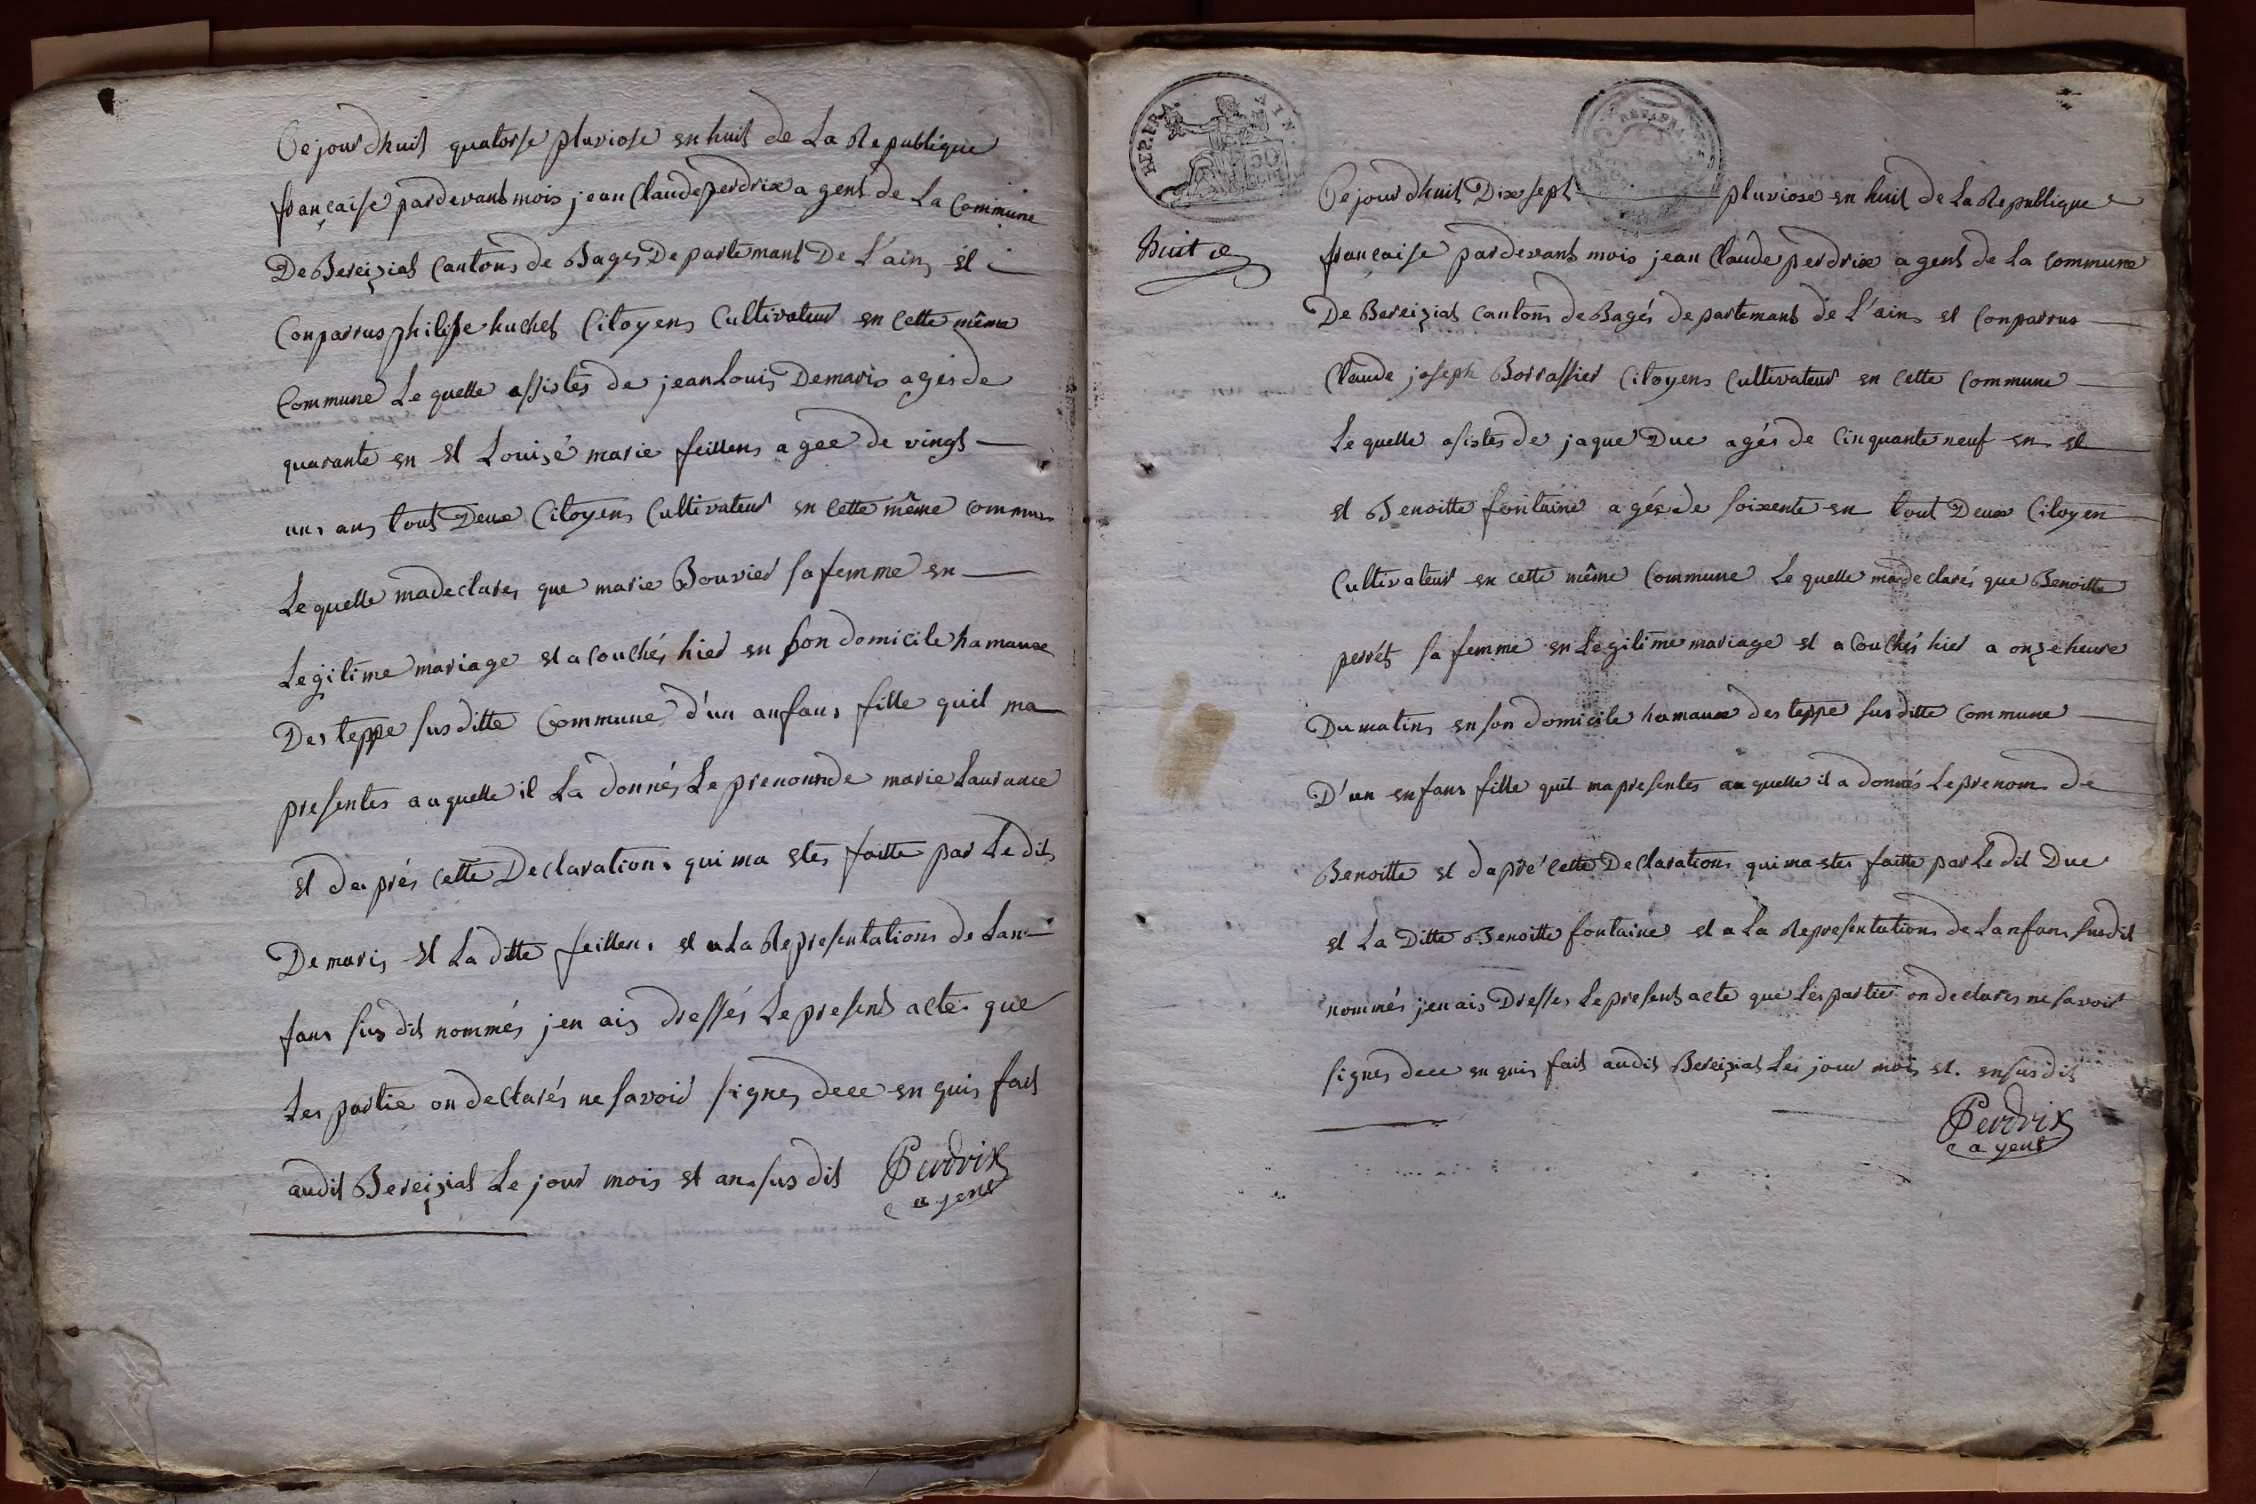 Ce jourdhuit quatorse pluviose en huit de La Republique
française pardevant mois jean Claude perdrix agent de La Commune
De Bereiziat Cantons de Bages Departemant De L'ain, et
Conparrus philippe huchet Citoyens Cultivateur en Cette même
Commune Le quelle assistes de jean Louis Demaris agés de
quarante en et Louise marie feillens agee de vingt
un, ans tout Deux Citoyens Cultivateur en Cette même commune
Le quelle ma declares que marie Bouvier sa femme en
Legitime mariage et acouchés hier en son domicile hamaux
Des teppe susditte Commune d'un anfans fille quil ma
presentes auquelle il La donnés Le prenom de marie Laurance
et de prés cette Declarations qui ma etes faitte par Le dit
Demaris et La ditte feillens et a La Representations de Lan
fans susdit nommés jen ais dressés Le present acte que
Les partie on declarés ne savoir signes dece en quis fait
audit Bereiziat Le jour mois et an susdit Perdrix
agent
REP. FRA.
AIN
50
REP. FRA.
huit e
Ce jourdhuit Dix sept pluviose en huit de La Republique
française pardevant mois jean Claude perdrix agent de La commune
De Bereiziat Cantons de Bagés departemant de L'ain et Conparrus
Claude joseph Borrassier Citoyens Cultivateur en Cette Commune
Le quelle asistes de jaque Duc agés de Cinquante neuf en et
et Benoitte fontaine agés de soixente en tout Deux Citoyen
Cultivateur en cette même Commune Le quelle ma declarés que Benoitte
perret sa femme en Legitime mariage et acouchés hier a onze heure
Du matins en son domicile hamaux des teppe susditte commune
D'un enfans fille quil ma presentes auquelle il a donnés Le prenom de
Benoitte et da pré cette Declarations qui ma etes faitte par Le dit Duc
et La Ditte Benoitte fontaine et a La Representations de Lanfans susdit
nommés jen ais Dresses Le present acte que Les partie on declares ne savoir
signes dece en quis fait audit Bereiziat Les jour mois et en susdit
Perdrix
agent